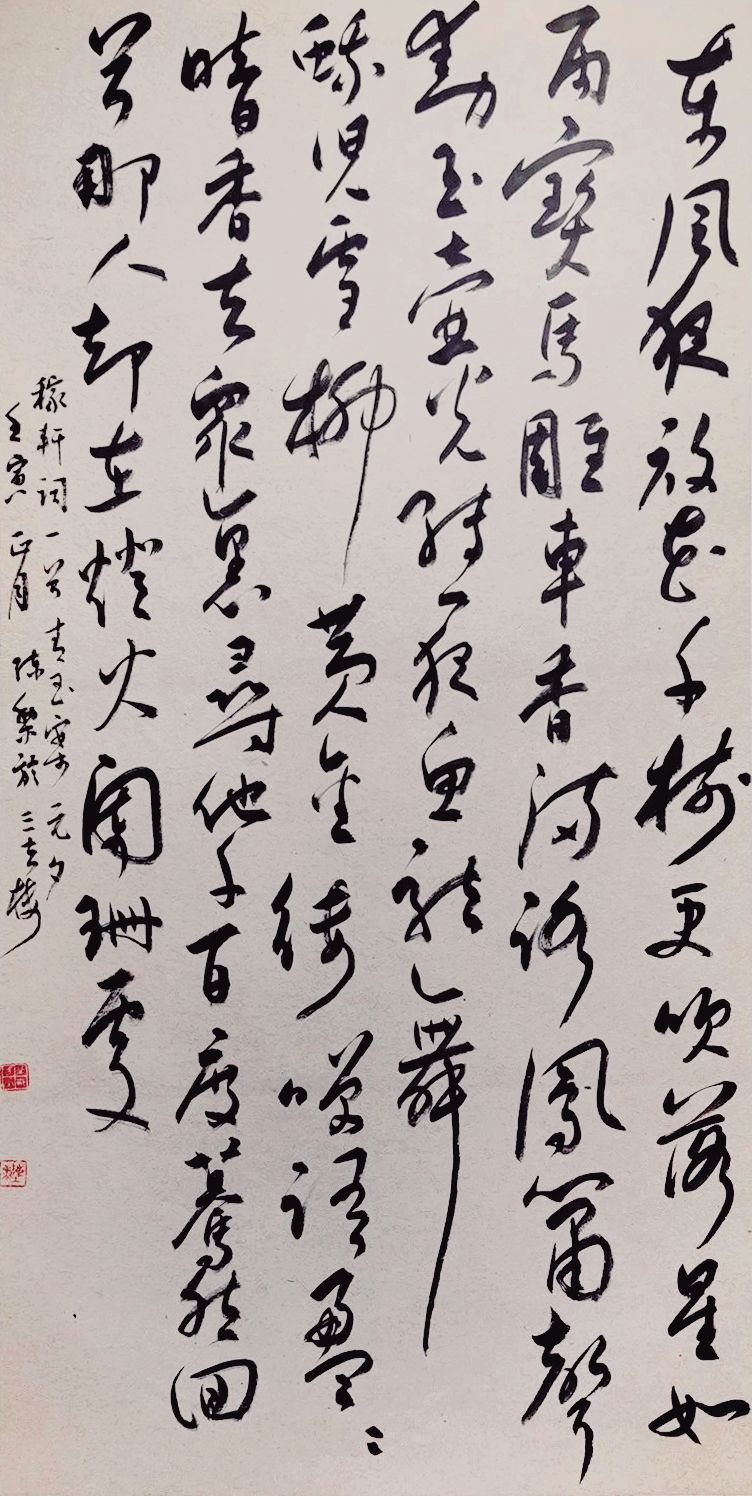 東風夜放花千樹更吹落星如
雨寶馬雕車香滿路鳳簫聲
動玉壺光轉一夜魚龍舞
蛾兒雪柳黃金縷咲語盈〻
暗香去眾裏尋他千百度驀然回
首那人却在燈火闌珊處
稼軒詞一首青玉案元夕
壬寅正月 陳 於三 樓